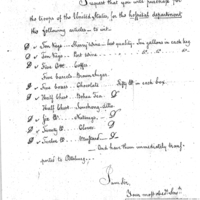 I request that you will purchase for
the troops of the United States, for the hospital department
the following articles — to wit.
Ten Kegs — Sherry wine — best quality. Ten gallons in each keg
Ten Kegs — wine
Five — Coffee.
Five barrels — Brown Sugar.
Five boxes — Chocolate — Fifty lb in each box.
Half Chest — Tea
Half Chest — Tea
Six lb — Nutmegs.
Twenty lb — Cloves.
Twelve lb — Mustard
and have them immediately trans-
ported to Pittsburg.
I am Sir,
Your most obedt. Servt.